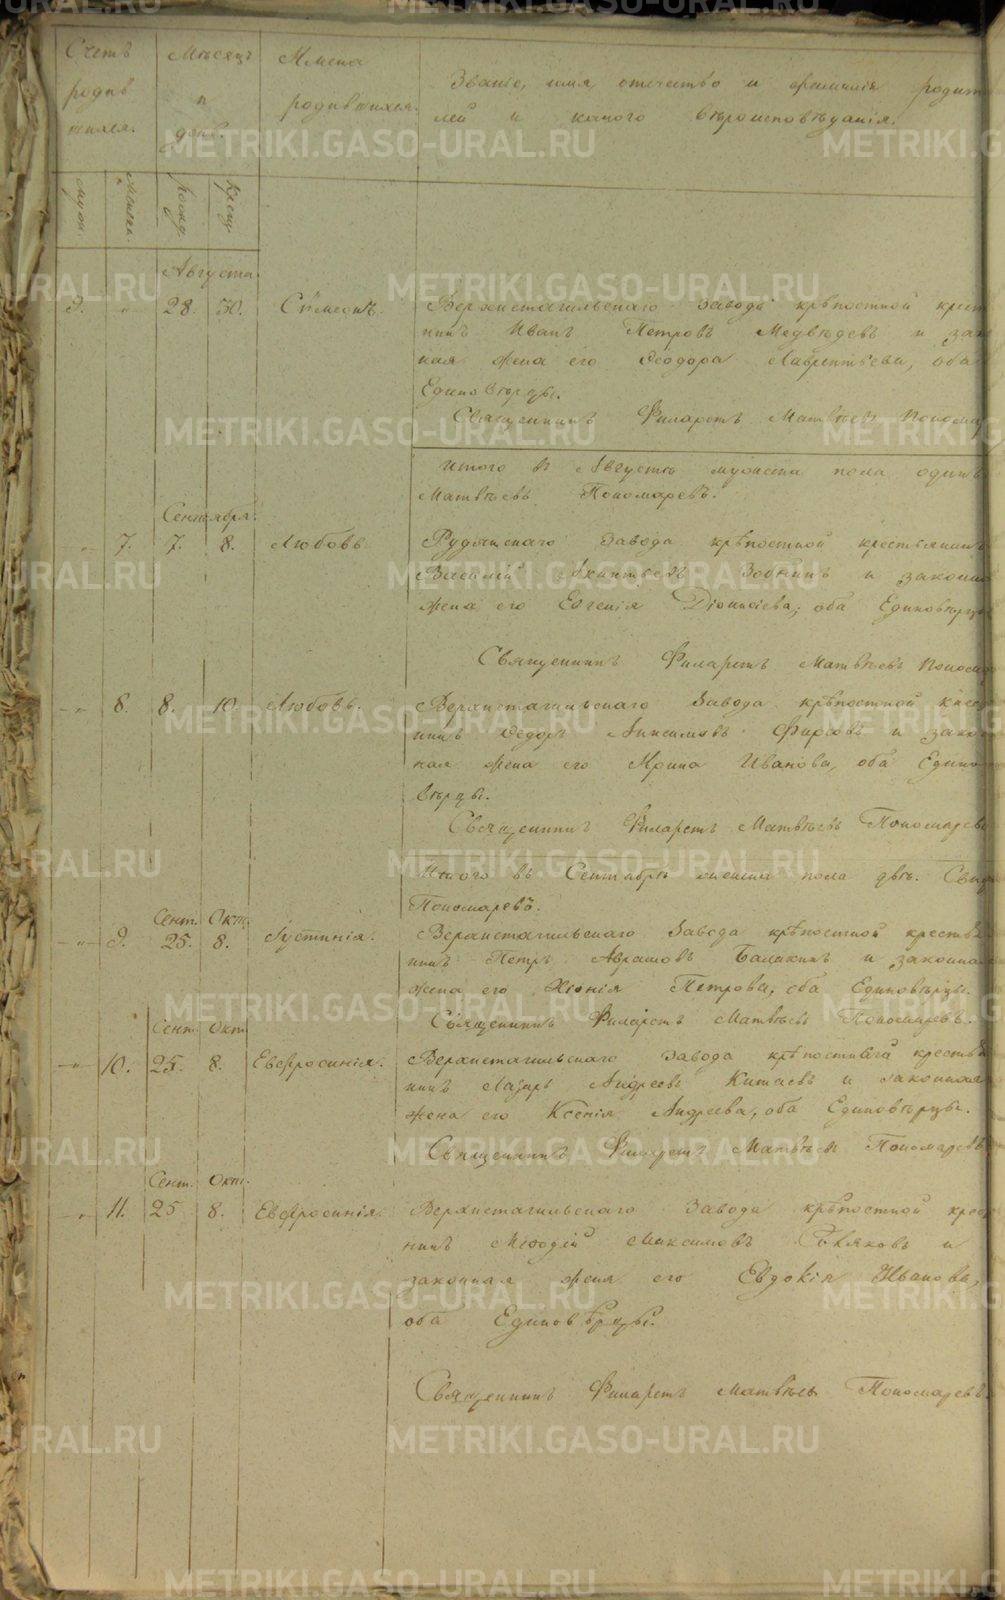 Счетъ родив шихся.
Мѣсяцъ и день.
Имена родившихся.
Званіе, имя, отчество и фамилія родит
лей и какого вѣроисповѣданія.
Мужи.
Женск.
Рожд.
Крещ.
Августа.
9. " 28. 30. Сѵмеонъ. Верхнетагильскаго завода крѣпостной крест
нинъ Иванъ Петровъ Медвѣдевъ и зак
ная жена его Ѳеодора Лаврентьева, оба
Единовѣрцы.
Священникъ Филаретъ Матвѣевъ Поном
Итого въ Августѣ мужеска пола одинъ
Матвѣевъ Пономаревъ.
Сентября.
" 7. 7. 8. Любовь. Рудянскаго завода крѣпостной крестьянинъ
Василій Зобнинъ и законн
жена его Евгенія Діонисіева, оба Единовѣрцы
Священникъ Филаретъ Матвѣевъ Поном
" 8. 8. 10. Любовь. Верхнетагильскаго завода крѣпостной крест
нинъ Ѳедоръ Анисимовъ Фирсовъ и закон
ная жена его Ирина Иванова, оба Едино
вѣрцы.
Священникъ Филаретъ Матвѣевъ Пономаревъ
Итого въ Сентябрѣ женска пола двѣ. Свящ
Пономаревъ.
Сент. Окт.
" 9. 25. 8. Іустинія. Верхнетагильскаго завода крѣпостной крестья
нинъ Петръ Аврамовъ Балакинъ и законная
жена его Хіонія Петрова, оба Единовѣрцы.
Священникъ Филаретъ Матвѣевъ Пономаревъ.
Сент. Окт.
" 10. 25. 8. Евфросинія. Верхнетагильскаго завода крѣпостной крестья
нинъ Лазарь Андреевъ Китаевъ и законная
жена его Ксенія Андреева, оба Единовѣрцы.
Священникъ Филаретъ Матвѣевъ Пономаревъ
Сент. Окт.
" 11. 25 8. Евфросинія. Верхнетагильскаго завода крѣпостной крес
нинъ Меѳодій Максимовъ и
законная жена его Евдокія Иванова,
оба Единовѣрцы.
Священникъ Филаретъ Матвѣевъ Пономаревъ.
METRIKI.GASO-URAL.RU